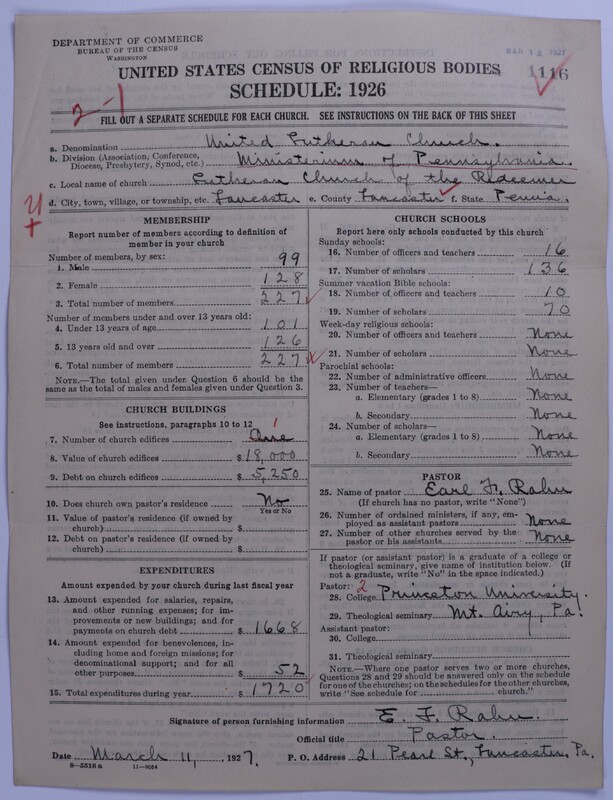 DEPARTMENT OF COMMERCE
BUREAU OF THE CENSUS
WASHINGTON
MAR 12 1927
UNITED STATES CENSUS OF RELIGIOUS BODIES
1116
SCHEDULE: 1926
2-1
FILL OUT A SEPARATE SCHEDULE FOR EACH CHURCH. SEE INSTRUCTIONS ON THE BACK OF THIS SHEET
a. Denomination United Lutheran Church.
b. Division (Association, Conference, Diocese, Presbytery, Synod, etc.) Ministerium of Pennsylvania.
c. Local name of church Lutheran Church of the Redeemer
d. City, town, village, or township, etc. Lancaster e. County Lancaster f. State Penna.
MEMBERSHIP
Report number of members according to definition of
member in your church
Number of members, by sex:
1. Male 99
2. Female 128
3. Total number of members 227
Number of members under and over 13 years old:
4. Under 13 years of age 101
5. 13 years old and over 126
6. Total number of members 227
NOTE.—The total given under Question 6 should be the
same as the total of males and females given under Question 3.
CHURCH BUILDINGS
See instructions, paragraphs 10 to 12
1
7. Number of church edifices One
8. Value of church edifices $18,000
9. Debt on church edifices $5,250
10. Does church own pastor's residence No
Yes or No
11. Value of pastor's residence (if owned by
church) $
12. Debt on pastor's residence (if owned by
church) $
EXPENDITURES
Amount expended by your church during last fiscal year
13. Amount expended for salaries, repairs,
and other running expenses; for im-
provements or new buildings; and for
payments on church debt $1668
14. Amount expended for benevolences, in-
cluding home and foreign missions; for
denominational support; and for all
other purposes $52
15. Total expenditures during year $1720
CHURCH SCHOOLS
Report here only schools conducted by this church
Sunday schools:
16. Number of officers and teachers 16
17. Number of scholars 136
Summer vacation Bible schools:
18. Number of officers and teachers 10
19. Number of scholars 70
Week-day religious schools:
20. Number of officers and teachers None
21. Number of scholars None
Parochial schools:
22. Number of administrative officers None
23. Number of teachers—
a. Elementary (grades 1 to 8) None
b. Secondary None
24. Number of scholars—
a. Elementary (grades 1 to 8) None
b. Secondary None
PASTOR
25. Name of pastor Earl F. Rahn
(If church has no pastor, write "None")
26. Number of ordained ministers, if any, em-
ployed as assistant pastors None
27. Number of other churches served by the
pastor or his assistants None
If pastor (or assistant pastor) is a graduate of a college or
theological seminary, give name of institution below. (If
not a graduate, write "No" in the space indicated.)
Pastor: 2
28. College Princeton University.
29. Theological seminary Mt. Airy, Pa.
Assistant pastor:
30. College
31. Theological seminary
NOTE.—Where one pastor serves two or more churches,
Questions 28 and 29 should be answered only on the schedule
for one of the churches; on the schedules for the other churches,
write "See schedule for church."
Signature of person furnishing information E. F. Rahn.
Official title Pastor.
Date March 11, 1927. P. O. Address 21 Pearl St., Lancaster, Pa.
8—5518a 11—9054